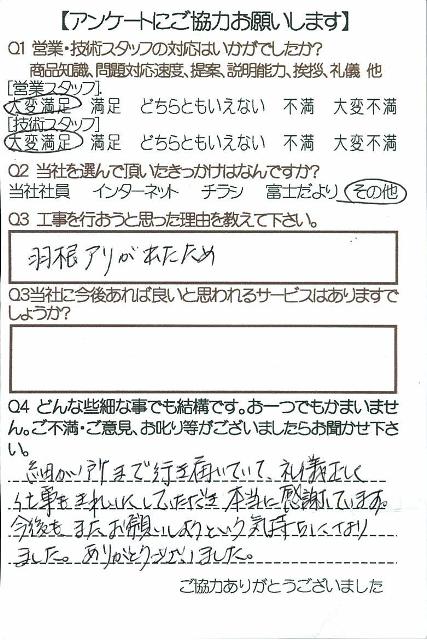 【アンケートにご協力お願いします】
Q1 営業・技術スタッフの対応はいかがでしたか?
商品知識、問題対応速度、提案、説明能力、挨拶、礼儀 他
[営業スタッフ]
大変満足 満足 どちらともいえない 不満 大変不満
[技術スタッフ]
大変満足 満足 どちらともいえない 不満 大変不満
Q2 当社を選んで頂いたきっかけはなんですか?
当社社員 インターネット チラシ 富士だより その他
Q3 工事を行おうと思った理由を教えて下さい。
羽根アリが出たため
Q3当社に今後あれば良いと思われるサービスはありますで
しょうか?
Q4 どんな些細な事でも結構です。お一つでもかまいませ
ん。ご不満・ご意見、お叱り等がございましたらお聞かせ下さ
い。
細かい所まで行き届いていて、礼儀正しく
仕事もきれいにしていただき本当に感謝しています。
今後も またお願いしようという気持ちになり
ました。ありがとうございました。
ご協力ありがとうございました